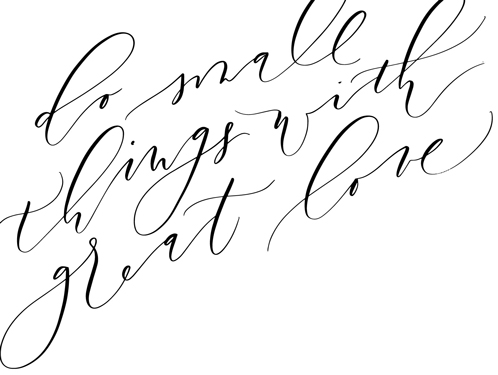 do small
things with
great love